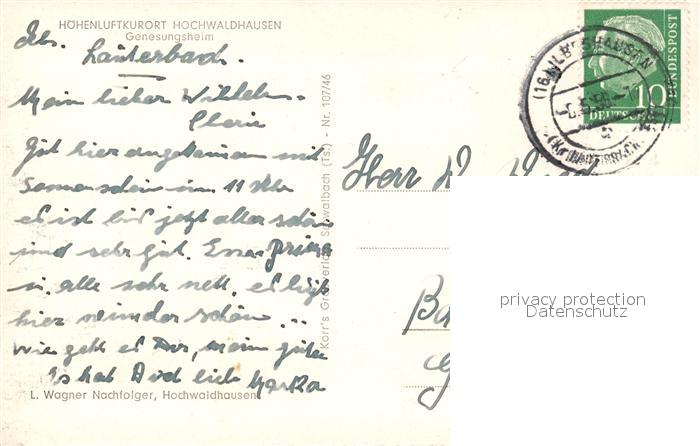 HÖHENLUFTKURORT HOCHWALDHAUSEN
Genesungsheim
Lauterbach.
Mein lieber Wilhelm.
Cherie
Gut hier angekommen mit
Sonnenschein um 11 Uhr
es ist bis jetzt alles schön
und sehr gut. Essen prima
u. alle sehr nett, es liegt
hier wunderschön ...
Wie geht es Dir, mein guter
Es hat Dich lieb Martha
L. Wagner Nachfolger, Hochwaldhausen
Korr's Großverlag Schwalbach (Ts.) - Nr. 107/46
Herr
Ba
DEUTSCHE
BUNDESPOST
10
privacy protection
Datenschutz